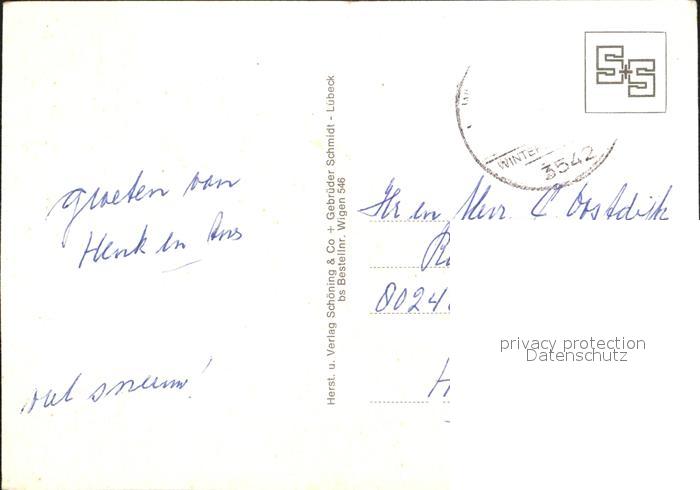 groeten van
Henk en Ans
veel sneeuw!
Herst. u. Verlag Schöning & Co + Gebrüder Schmidt - Lübeck
bs Bestellnr. Wigen 546
S+S
WINTER
3542
Hr en Mevr. C Oostdijk
8024
H
privacy protection
Datenschutz